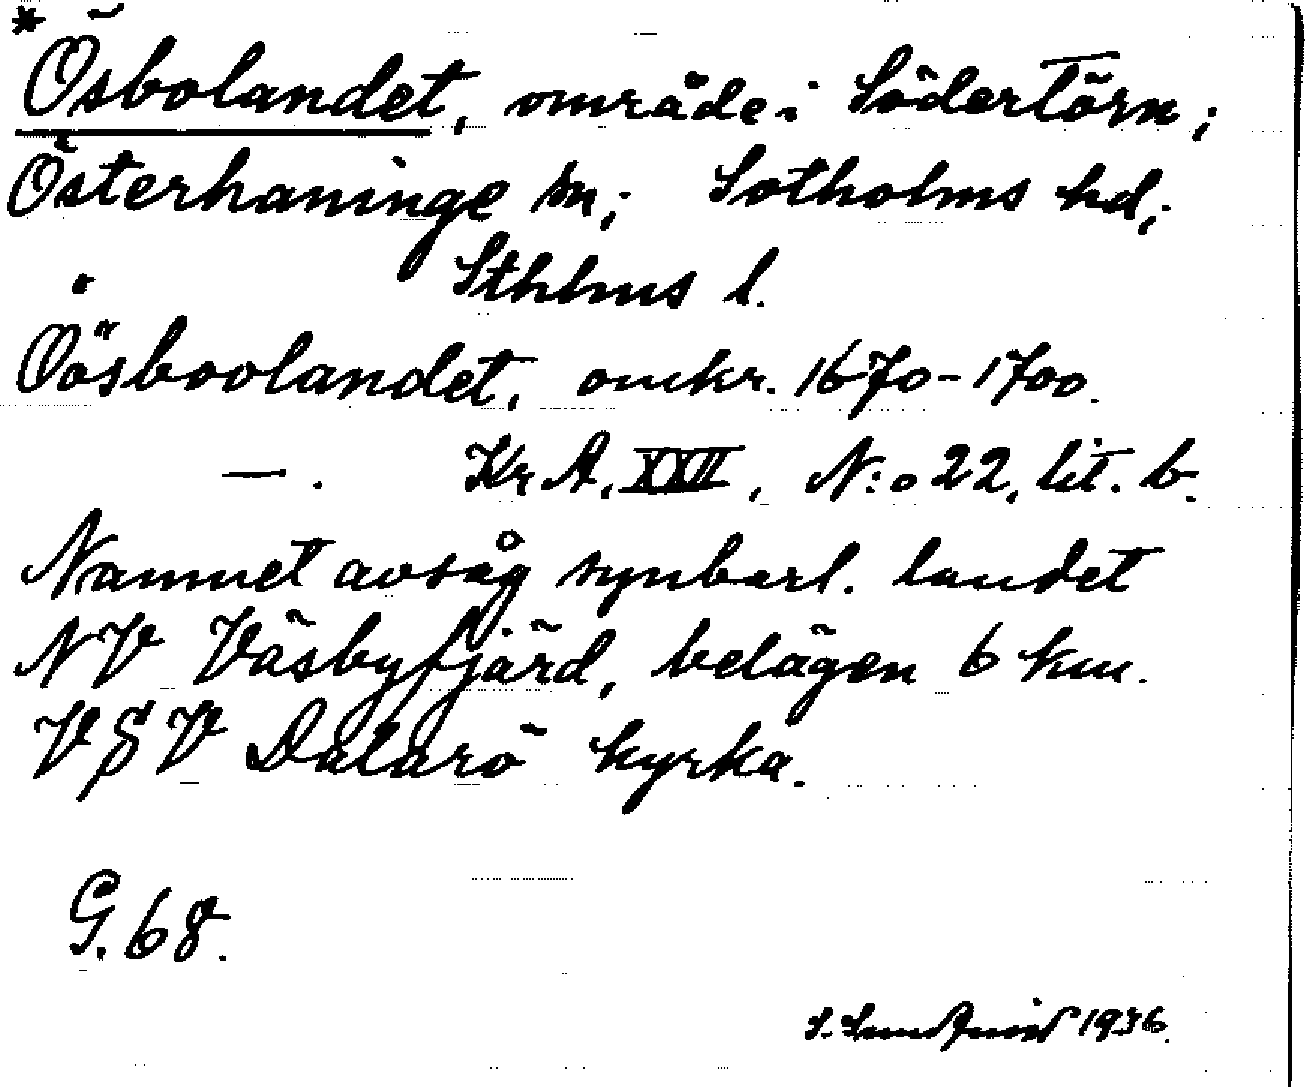 *Ösbolandet, område i Södertörn;
Österhaninge sn; Sotholms hd;
Sthlms l.
Öösboolandet, omkr. 1670-1700.
—. KrA, XXII, N:o 22, lit. b.
Namnet avsåg synbarl. landet
NV Väsbyfjärd, belägen 6 km.
VSV Dalarö kyrka.
G. 68.
1936.